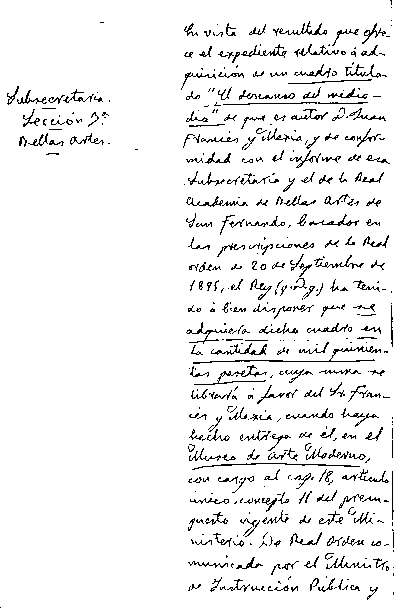 Subsecretaría.
Sección 3ª
Bellas Artes.
En vista del resultado que ofre-
ce el expediente relativo á ad-
quisición de un cuadro titula-
do "El descanso del medio-
dia" de que es autor D. Juan
Francés y Mexia, y de confor-
midad con el informe de esa
Subsecretaría y el de la Real
Academia de Bellas Artes de
San Fernando, basados en
las prescripciones de la Real
orden de 20 de Septiembre de
1895, el Rey (q. D. g.) ha teni-
do á bien disponer que se
adquiera dicho cuadro en
la cantidad de mil quinien-
tas pesetas, cuya suma se
librará á favor del Sr. Fran-
cés y Mexia, cuando haya
hecho entrega de él, en el
Museo de Arte Moderno,
con cargo al cap. 18, artículo
único, concepto 11 del presu-
puesto vigente de este Mi-
nisterio. De Real orden co-
municada por el Ministro
de Instrucción Pública y